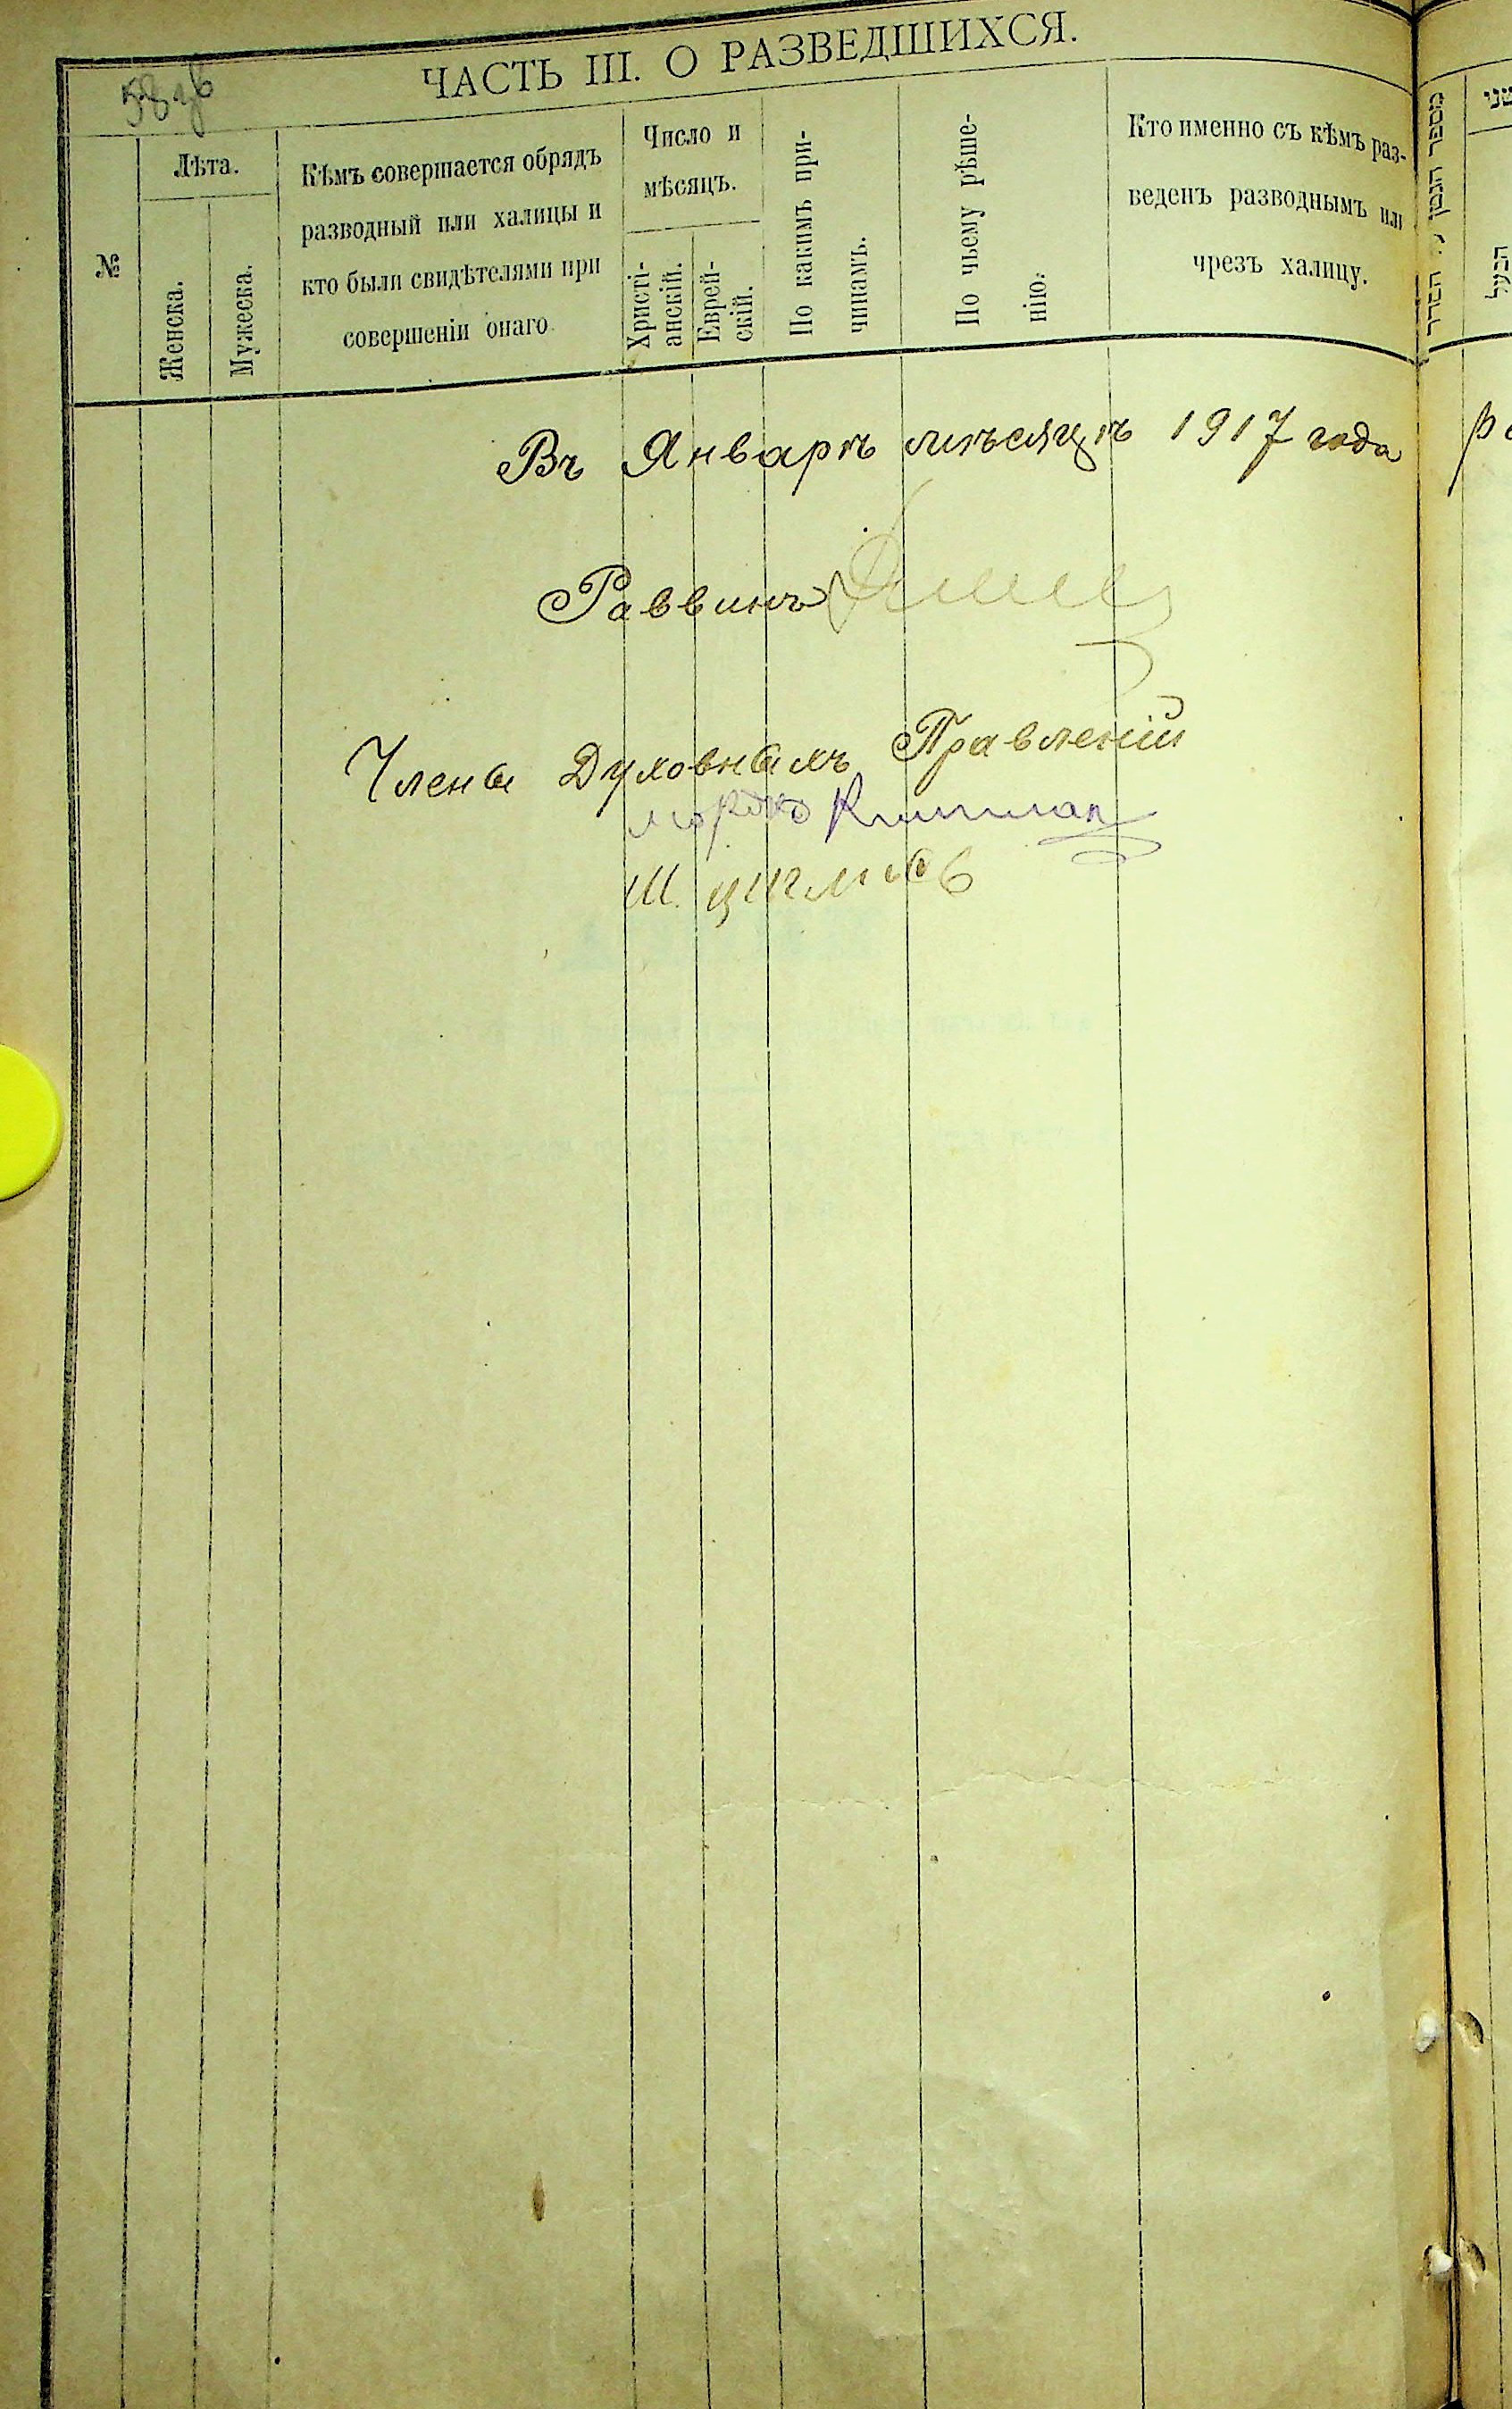 ЧАСТЬ III. О РАЗВЕДШИХСЯ.
№
Лѣта.
Женска.
Мужеска.
Кѣмъ совершается обрядъ
разводный или халицы и
кто были свидѣтелями при
совершеніи онаго
Число и
мѣсяцъ.
Христі-
анскій.
Еврей-
скій.
По какимъ при-
чинамъ.
По чьему рѣше-
нію.
Кто именно съ кѣмъ раз-
веденъ разводнымъ или
чрезъ халицу.
הבעל
Въ Январѣ мѣсяцѣ 1917 года
Раввинъ
Члены Духовныхъ Правленій
Мордко
Ш.